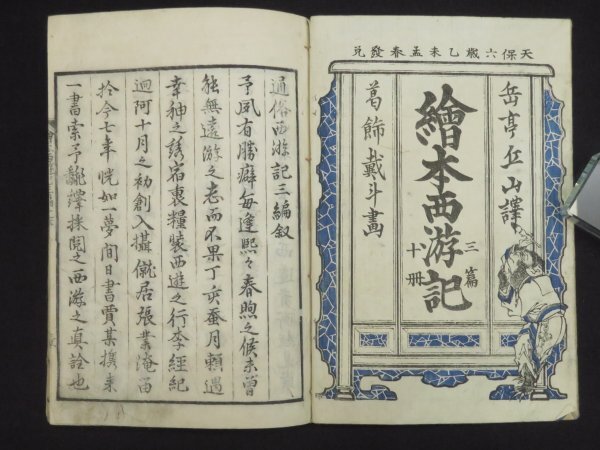 天保六歲乙未孟春發兌
岳亭丘山譯
繪本西游記
三篇
十冊
葛飾戴斗畫
通俗西游記三編叙
予夙有勝癖每逢熙々春煦之候未曾
能無遠游之志而不果丁亥蚕月賴遇
幸神之誘宿裹糧裝西遊之行李經紀
迴阿十月之初創入攝僦居張業淹留
於今七年恍如一夢間日書賈某攜來
一書索予飜譯採閱之西游之真詮也